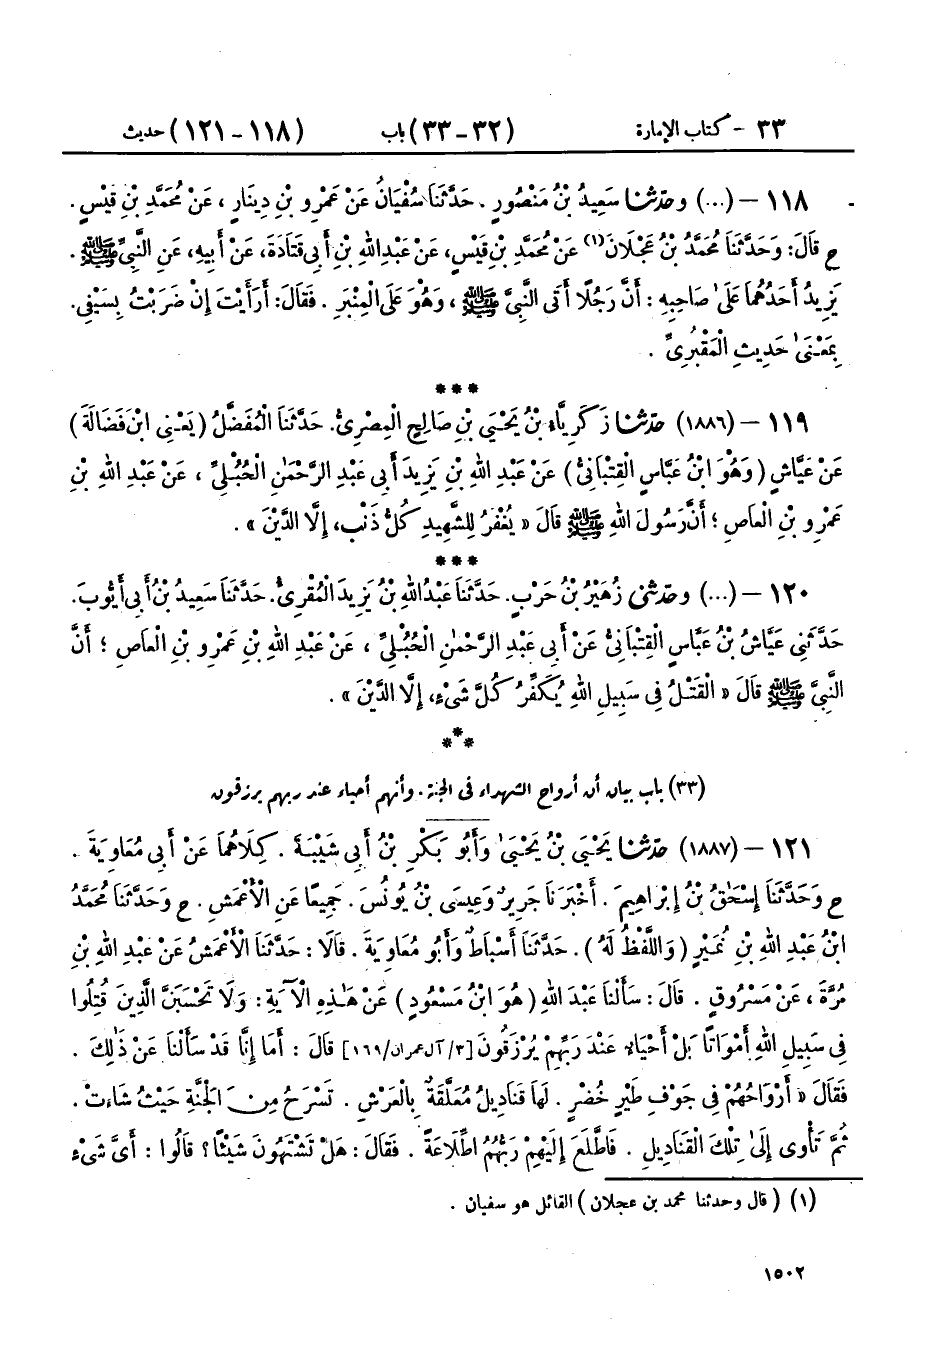 ٣٣ - كتاب الإمارة (٣٢ - ٣٣) باب (١١٨ - ١٢١) حديث
١١٨ — (...) وحَدَّثَنَا سَعِيدُ بْنُ مَنْصُورٍ . حَدَّثَنَا سُفْيَانُ عَنْ عَمْرِو بْنِ دِينَارٍ ، عَنْ مُحَمَّدِ بْنِ قَيْسٍ .
ح قَالَ: وَحَدَّثَنَا مُحَمَّدُ بْنُ عَجْلَانَ(١) عَنْ مُحَمَّدِ بْنِ قَيْسٍ، عَنْ عَبْدِ اللهِ بْنِ أَبِي قَتَادَةَ، عَنْ أَبِيهِ، عَنِ النَّبِيِّ ﷺ .
يَزِيدُ أَحَدُهُمَا عَلَىٰ صَاحِبِهِ : أَنَّ رَجُلًا أَتَى النَّبِيَّ ﷺ ، وَهُوَ عَلَى الْمِنْبَرِ . فَقَالَ: أَرَأَيْتَ إِنْ ضَرَبْتُ بِسَيْفِي.
بِمَعْنَىٰ حَدِيثِ الْمَقْبُرِيِّ .
***
١١٩ — (١٨٨٦) حَدَّثَنَا زَكَرِيَّاءُ بْنُ يَحْيَى بْنِ صَالِحٍ الْمِصْرِيُّ. حَدَّثَنَا الْمُفَضَّلُ (يَعْنِي ابْنَ فَضَالَةَ)
عَنْ عَيَّاشٍ ( وَهُوَ ابْنُ عَبَّاسٍ الْقِتْبَانِيُّ ) عَنْ عَبْدِ اللهِ بْنِ يَزِيدَ أَبِي عَبْدِ الرَّحْمَٰنِ الْحُبُلِيِّ ، عَنْ عَبْدِ اللهِ بْنِ
عَمْرِو بْنِ الْعَاصِ ؛ أَنَّ رَسُولَ اللهِ ﷺ قَالَ « يُغْفَرُ لِلشَّهِيدِ كُلُّ ذَنْبٍ، إِلَّا الدَّيْنَ » .
***
١٢٠ — (...) وحَدَّثَنِي زُهَيْرُ بْنُ حَرْبٍ. حَدَّثَنَا عَبْدُ اللهِ بْنُ يَزِيدَ الْمُقْرِئُ. حَدَّثَنَا سَعِيدُ بْنُ أَبِي أَيُّوبَ.
حَدَّثَنِي عَيَّاشُ بْنُ عَبَّاسٍ الْقِتْبَانِيُّ عَنْ أَبِي عَبْدِ الرَّحْمَٰنِ الْحُبُلِيِّ ، عَنْ عَبْدِ اللهِ بْنِ عَمْرِو بْنِ الْعَاصِ ؛ أَنَّ
النَّبِيَّ ﷺ قَالَ « الْقَتْلُ فِي سَبِيلِ اللهِ يُكَفِّرُ كُلَّ شَيْءٍ، إِلَّا الدَّيْنَ » .
***
(٣٣) باب بيان أن أرواح الشهداء فى الجنة، وأنهم أحياء عند ربهم يرزقون
١٢١ — (١٨٨٧) حَدَّثَنَا يَحْيَى بْنُ يَحْيَىٰ وَأَبُو بَكْرِ بْنُ أَبِي شَيْبَةَ . كِلَاهُمَا عَنْ أَبِي مُعَاوِيَةَ .
ح وَحَدَّثَنَا إِسْحَٰقُ بْنُ إِبْرَاهِيمَ . أَخْبَرَنَا جَرِيرٌ وَعِيسَى بْنُ يُونُسَ . جَمِيعًا عَنِ الْأَعْمَشِ . ح وَحَدَّثَنَا مُحَمَّدُ
ابْنُ عَبْدِ اللهِ بْنِ نُمَيْرٍ ( وَاللَّفْظُ لَهُ ) . حَدَّثَنَا أَسْبَاطٌ وَأَبُو مُعَاوِيَةَ . قَالَا : حَدَّثَنَا الْأَعْمَشُ عَنْ عَبْدِ اللهِ بْنِ
مُرَّةَ ، عَنْ مَسْرُوقٍ . قَالَ: سَأَلْنَا عَبْدَ اللهِ ( هُوَ ابْنُ مَسْعُودٍ ) عَنْ هَٰذِهِ الْآيَةِ : وَلَا تَحْسَبَنَّ الَّذِينَ قُتِلُوا
فِي سَبِيلِ اللهِ أَمْوَاتًا بَلْ أَحْيَاءٌ عِنْدَ رَبِّهِمْ يُرْزَقُونَ [٣/ آل عمران/١٦٩] قَالَ : أَمَا إِنَّا قَدْ سَأَلْنَا عَنْ ذَٰلِكَ .
فَقَالَ « أَرْوَاحُهُمْ فِي جَوْفِ طَيْرٍ خُضْرٍ . لَهَا قَنَادِيلُ مُعَلَّقَةٌ بِالْعَرْشِ . تَسْرَحُ مِنَ الْجَنَّةِ حَيْثُ شَاءَتْ .
ثُمَّ تَأْوِي إِلَىٰ تِلْكَ الْقَنَادِيلِ . فَاطَّلَعَ إِلَيْهِمْ رَبُّهُمُ اطِّلَاعَةً . فَقَالَ : هَلْ تَشْتَهُونَ شَيْئًا؟ قَالُوا : أَيَّ شَيْءٍ
(١) ( قال وحدثنا محمد بن عجلان ) القائل هو سفيان .
١٥٠٢